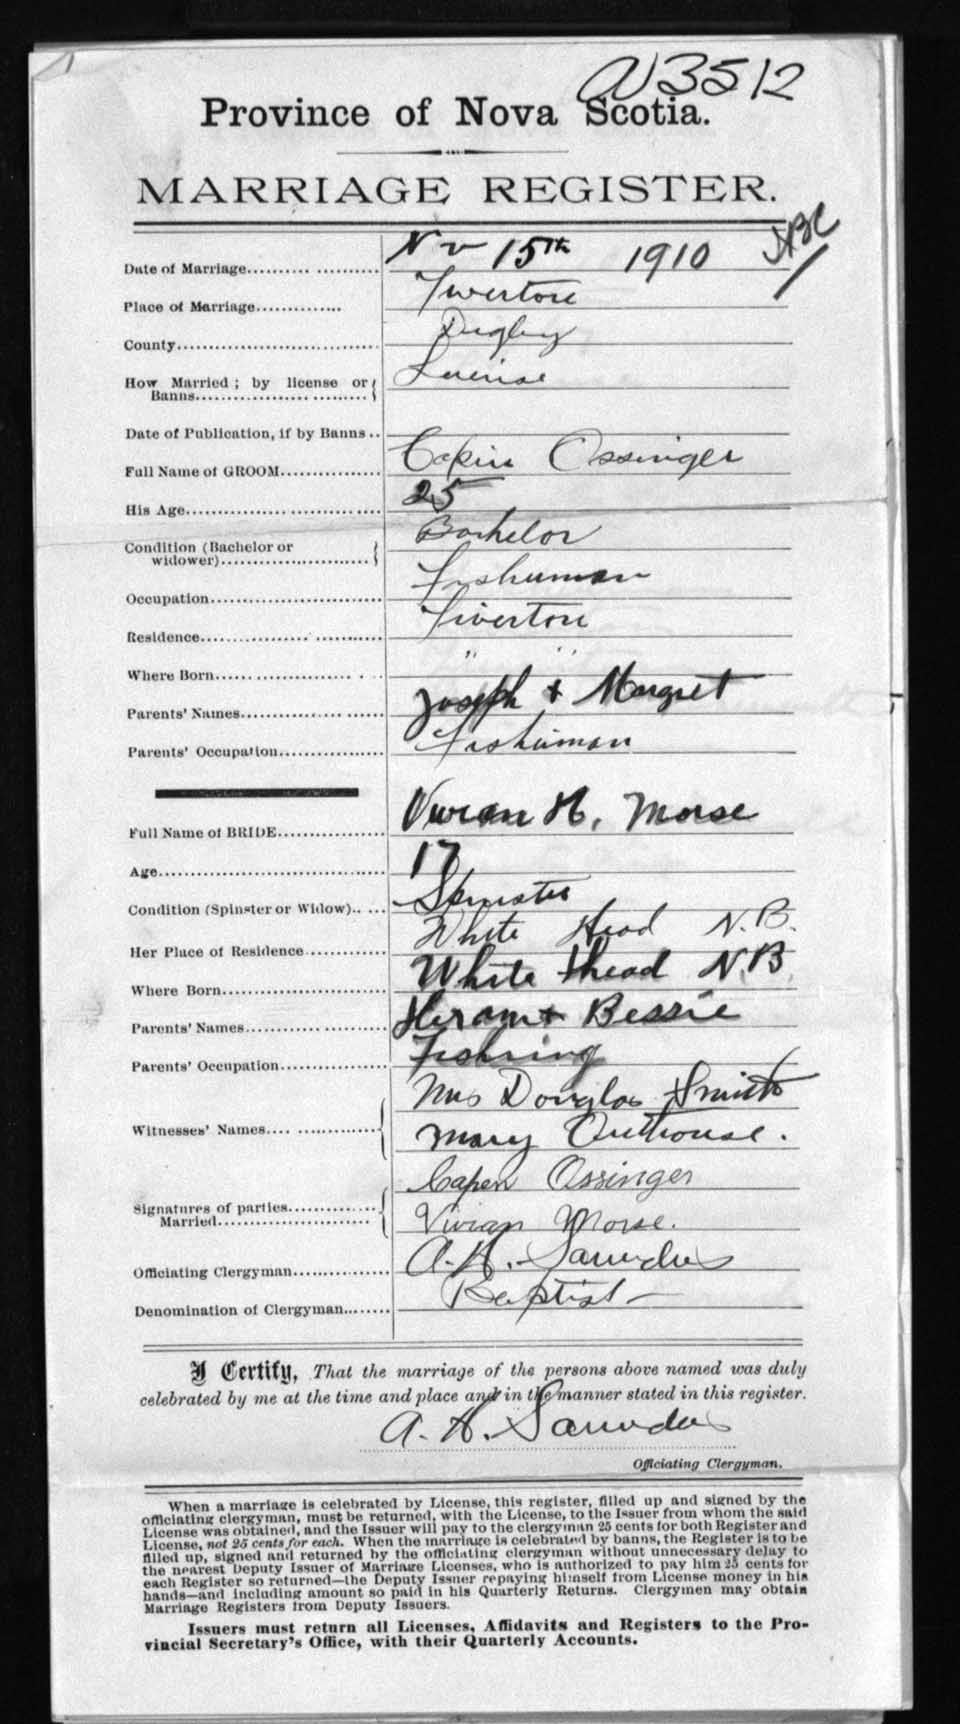 3512
Province of Nova Scotia.
MARRIAGE REGISTER.
Date of Marriage.......... Nov 15th 1910
Place of Marriage............. Tiverton
County............................. Digby
How Married; by license or License
Banns.............................
Date of Publication, if by Banns..
Full Name of GROOM............... Capin Ossinger
His Age............................. 25
Condition (Bachelor or Bachelor
widower)........................
Occupation......................... Fishuman
Residence.......................... Tiverton
Where Born........................ " "
Parents' Names.................... Joseph & Margret
Parents' Occupation............... Fishuman
Full Name of BRIDE............... Vivian H. Morse
Age................................. 17
Condition (Spinster or Widow)..... Spinster
Her Place of Residence............ White Head N.B.
Where Born........................ White Head N.B.
Parents' Names.................... Hiram & Bessie
Parents' Occupation............... Fishing
Mrs Douglas Smith
Witnesses' Names.................
Mary Outhouse.
Capen Ossinger
Signatures of parties.............
Married........................ Vivian Morse.
Officiating Clergyman............. A. H. Saunders
Denomination of Clergyman....... Baptist
I Certify, That the marriage of the persons above named was duly
celebrated by me at the time and place and in the manner stated in this register.
A. H. Saunders
Officiating Clergyman.
When a marriage is celebrated by License, this register, filled up and signed by the
officiating clergyman, must be returned, with the License, to the Issuer from whom the said
License was obtained, and the Issuer will pay to the clergyman 25 cents for both Register and
License, not 25 cents for each. When the marriage is celebrated by banns, the Register is to be
filled up, signed and returned by the officiating clergyman without unnecessary delay to
the nearest Deputy Issuer of Marriage Licenses, who is authorized to pay him 25 cents for
each Register so returned—the Deputy Issuer repaying himself from License money in his
hands—and including amount so paid in his Quarterly Returns. Clergymen may obtain
Marriage Registers from Deputy Issuers.
Issuers must return all Licenses, Affidavits and Registers to the Pro-
vincial Secretary's Office, with their Quarterly Accounts.